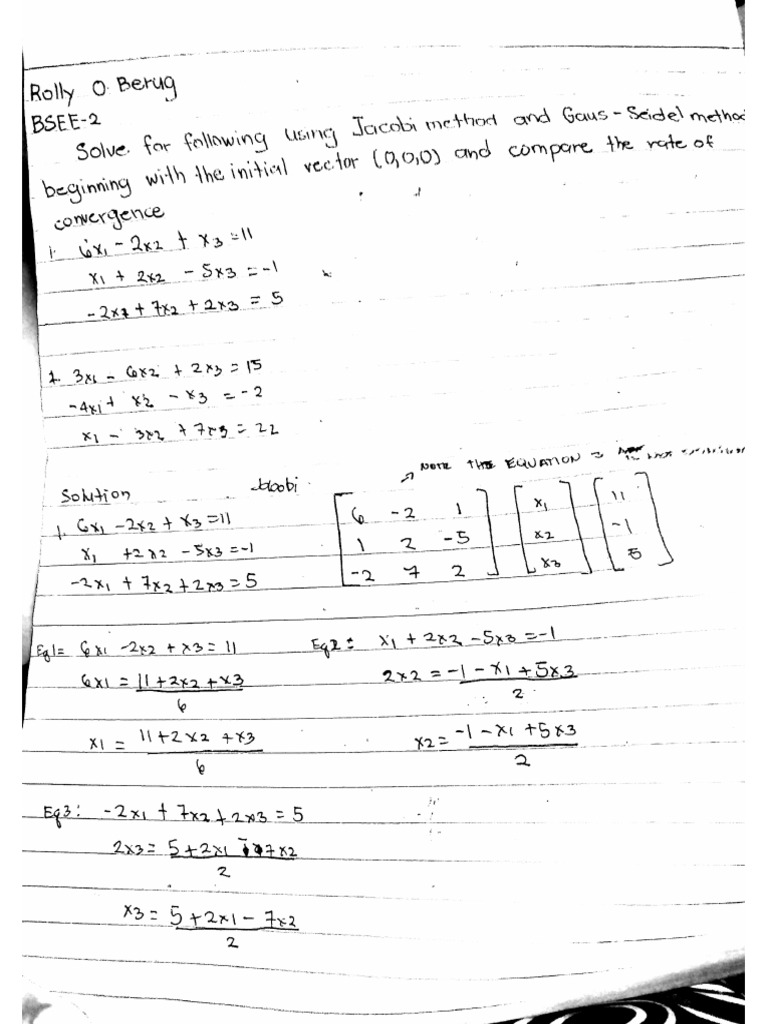 Rolly O. Berug
BSEE-2
Solve for following using Jacobi method and Gaus-Seidel method
beginning with the initial vector (0,0,0) and compare the rate of
convergence
1. 6x1 - 2x2 + x3 = 11
x1 + 2x2 - 5x3 = -1
-2x1 + 7x2 + 2x3 = 5
2. 3x1 - 6x2 + 2x3 = 15
-4x1 + x2 - x3 = -2
x1 - 3x2 + 7x3 = 22
NOTE THE EQUATION
Solution Jacobi
1. 6x1 - 2x2 + x3 = 11
x1 + 2x2 - 5x3 = -1
-2x1 + 7x2 + 2x3 = 5
6 -2 1 x1 11
1 2 -5 x2 -1
-2 7 2 x3 5
Eq1= 6x1 - 2x2 + x3 = 11
6x1 = 11+2x2+x3
6
x1 = 11+2x2+x3
6
Eq2: x1 + 2x2 - 5x3 = -1
2x2 = -1 - x1 + 5x3
2
x2 = -1 - x1 + 5x3
2
Eq3: -2x1 + 7x2 + 2x3 = 5
2x3 = 5+2x1 - 7x2
2
x3 = 5+2x1 - 7x2
2